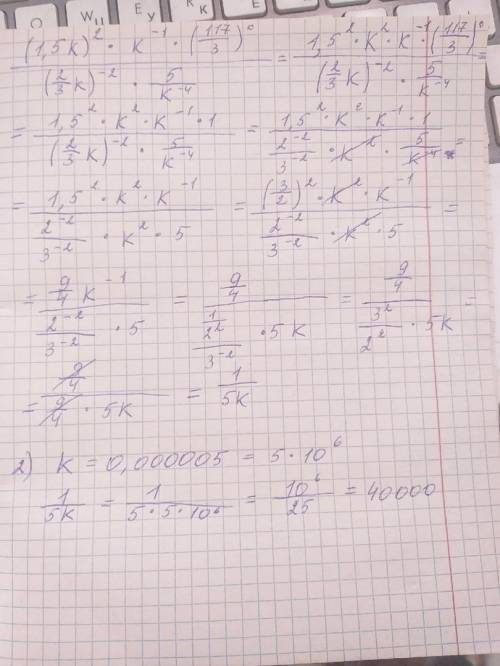 ((1,5k)² · k⁻¹ · (117/3)⁰) / ((2/3 k)⁻² · 5/k⁻⁴) = (1,5² · k² · k⁻¹ · (117/3)⁰) / ((2/3 k)⁻² · 5/k⁻⁴) =
= (1,5² · k² · k⁻¹ · 1) / ((2/3 k)⁻² · 5/k⁻⁴) = (1,5² · k² · k⁻¹ · 1) / (2⁻²/3⁻² · k⁻² · 5/k⁻⁴) =
= (1,5² · k² · k⁻¹) / (2⁻²/3⁻² · k² · 5) = ((3/2)² · k² · k⁻¹) / (2⁻²/3⁻² · k² · 5) =
= (9/4 k⁻¹) / (2⁻²/3⁻² · 5) = (9/4) / ((1/2²)/3⁻² · 5k) = (9/4) / (3²/2² · 5k) =
= (9/4) / (9/4 · 5k) = 1/5k
2) k = 0,000005 = 5 · 10⁶
1/5k = 1/(5 · 5 · 10⁶) = 10⁶/25 = 40000